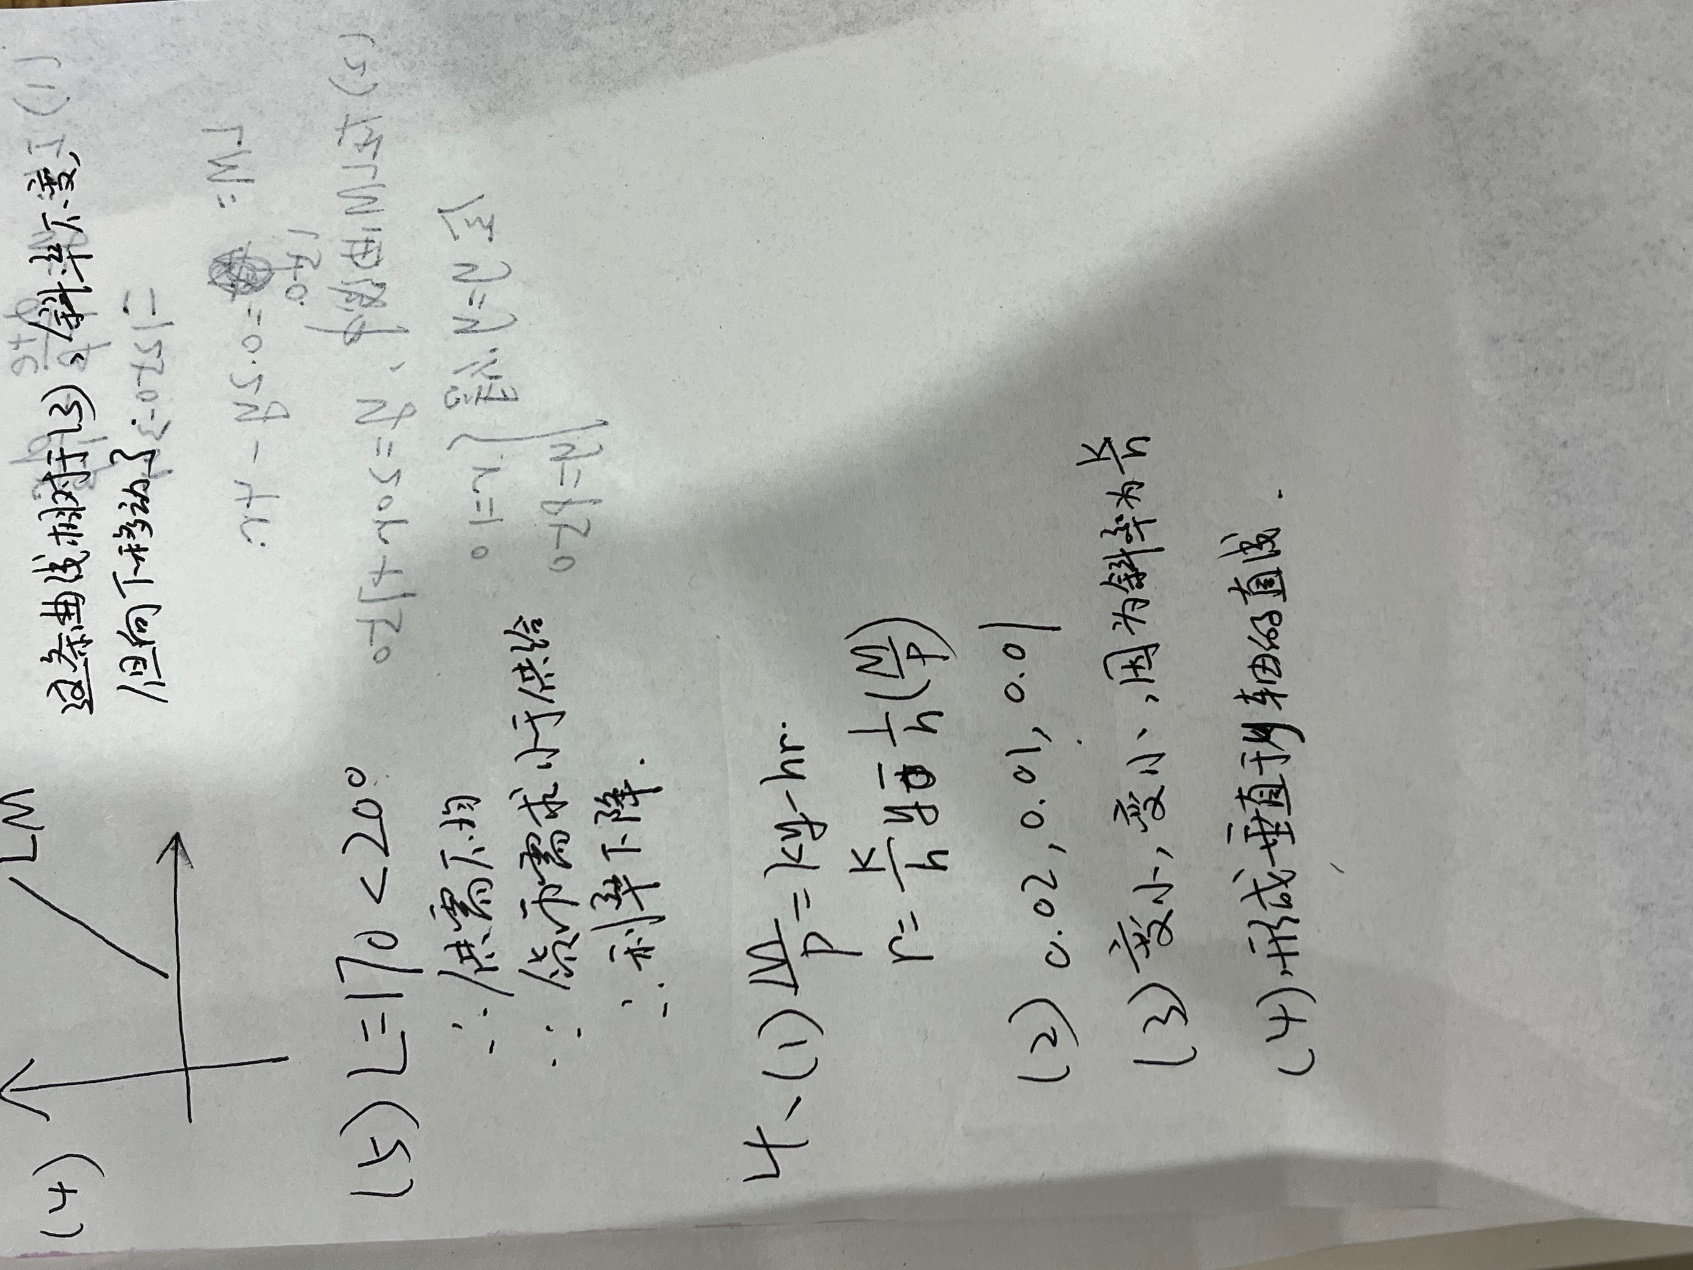 (4)
LM
这条曲线相对于(3),斜率不变,
但向下移动了
(5) L=170<200
∴供需不均
∴货币需求小于供给
∴利率下降.
4、(1) M/P=ky-hr.
r=k/h y-1/h(M/P)
(2) 0.02, 0.01, 0.01
(3) 变小,变小,因为斜率为k/h
(4)形成垂直于y轴的直线.